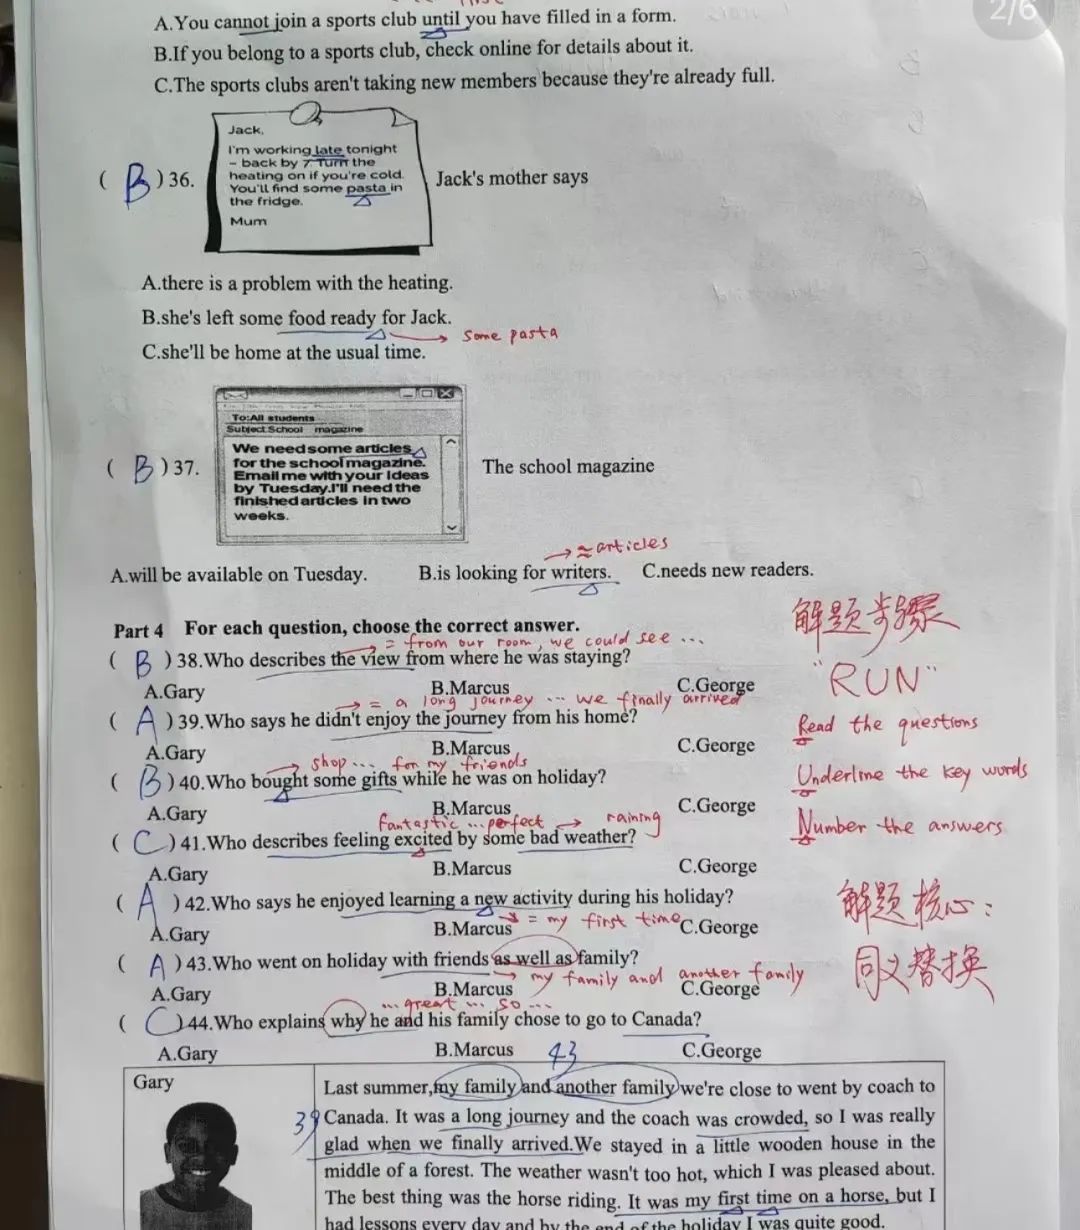 2/6
A.You cannot join a sports club until you have filled in a form.
B.If you belong to a sports club, check online for details about it.
C.The sports clubs aren't taking new members because they're already full.
Jack,
I'm working late tonight
– back by 7. Turn the
heating on if you're cold.
You'll find some pasta in
the fridge.
Mum
( B ) 36.
Jack's mother says
A.there is a problem with the heating.
B.she's left some food ready for Jack.
some pasta
C.she'll be home at the usual time.
To:All students
Subject:School magazine
We need some articles
for the school magazine.
Email me with your ideas
by Tuesday.I'll need the
finished articles in two
weeks.
( B ) 37.
The school magazine
≈ articles
A.will be available on Tuesday. B.is looking for writers. C.needs new readers.
解题步骤
"RUN"
Read the questions
Underline the key words
Number the answers
解题核心:
同义替换
Part 4 For each question, choose the correct answer.
= from our room, we could see ...
( B ) 38.Who describes the view from where he was staying?
A.Gary B.Marcus C.George
= a long journey ... we finally arrived
( A ) 39.Who says he didn't enjoy the journey from his home?
A.Gary B.Marcus C.George
shop ... for my friends
( B ) 40.Who bought some gifts while he was on holiday?
A.Gary B.Marcus C.George
fantastic ... perfect → raining
( C ) 41.Who describes feeling excited by some bad weather?
A.Gary B.Marcus C.George
( A ) 42.Who says he enjoyed learning a new activity during his holiday?
= my first time
A.Gary B.Marcus C.George
( A ) 43.Who went on holiday with friends as well as family?
my family and another family
A.Gary B.Marcus C.George
... great ... so ...
( C ) 44.Who explains why he and his family chose to go to Canada?
A.Gary B.Marcus C.George
43
Gary
Last summer,my family and another family we're close to went by coach to
39 Canada. It was a long journey and the coach was crowded, so I was really
glad when we finally arrived.We stayed in a little wooden house in the
middle of a forest. The weather wasn't too hot, which I was pleased about.
The best thing was the horse riding. It was my first time on a horse, but I
had lessons every day and by the end of the holiday I was quite good.